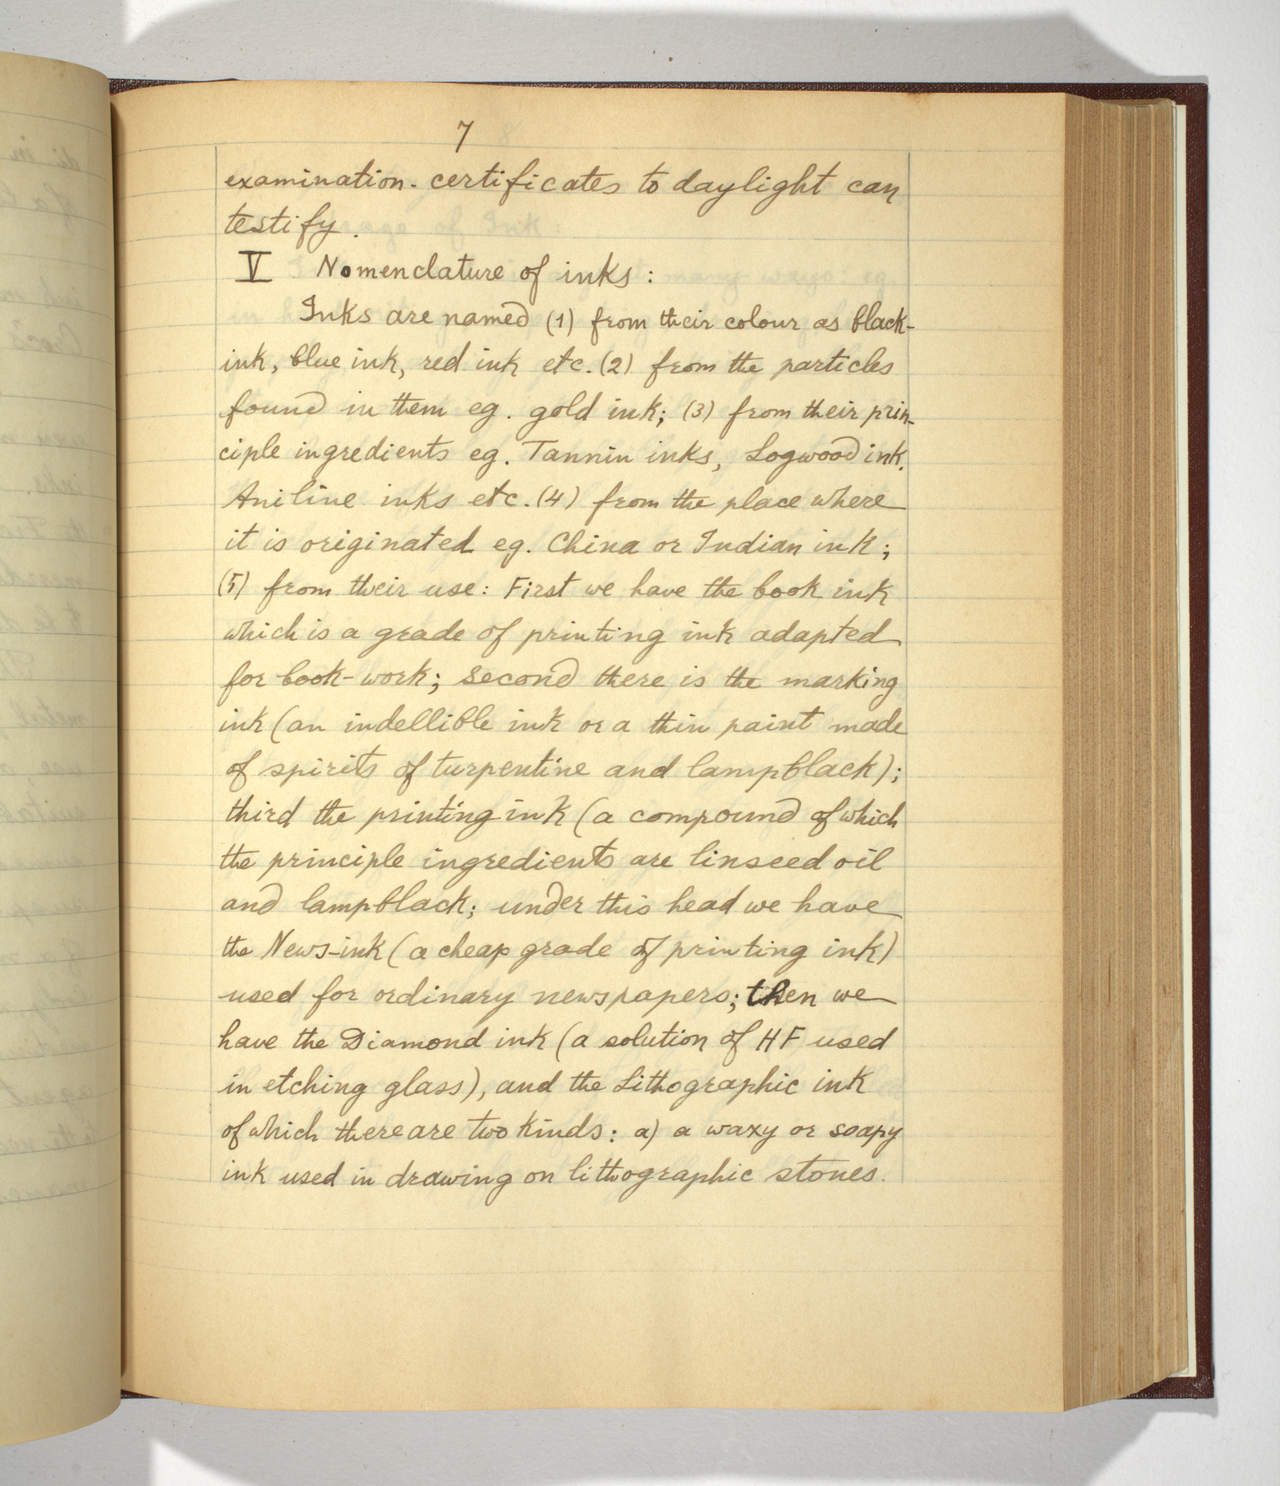 7
examination. certificates to daylight can
testify.
V Nomenclature of inks:
Inks are named (1) from their colour as black-
ink, blue ink, red ink etc. (2) from the particles
found in them eg. gold ink; (3) from their prin-
ciple ingredients eg. Tannin inks, Logwood ink,
Aniline inks etc. (4) from the place where
it is originated eg. China or Indian ink;
(5) from their use: First we have the book ink
which is a grade of printing ink adapted
for book-work; second there is the marking
ink (an indellible ink or a thin paint made
of spirits of turpentine and lampblack);
third the printing ink (a compound of which
the principle ingredients are linseed oil
and lampblack; under this head we have
the News-ink (a cheap grade of printing ink)
used for ordinary newspapers; then we
have the Diamond ink (a solution of HF used
in etching glass), and the Lithographic ink
of which there are two kinds: a) a waxy or soapy
ink used in drawing on lithographic stones.